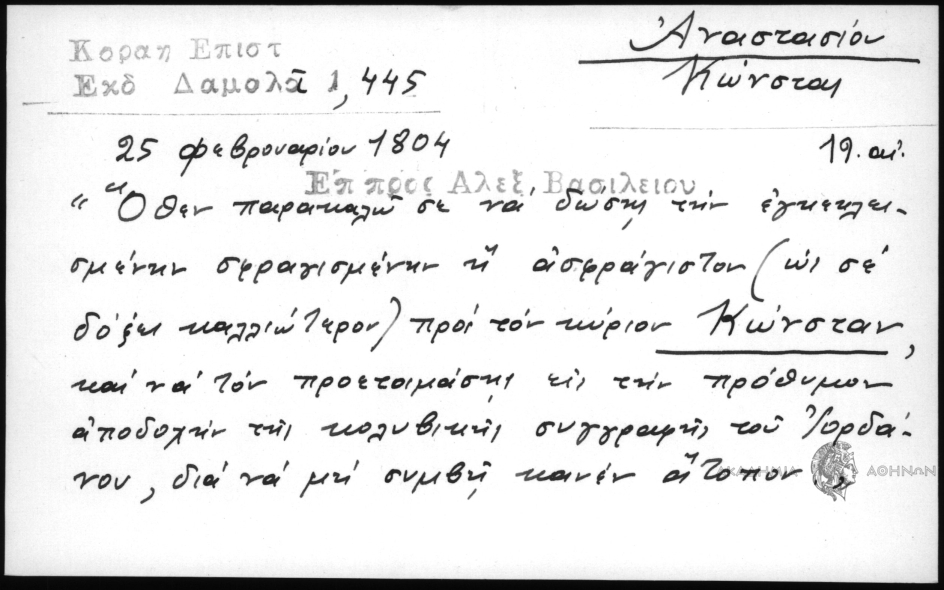 Κοραη Επιστ
Εκδ Δαμαλᾶ 1,445
Ἀναστασίου
Κώνστας
25 φεβρουαρίου 1804
19. αἰ.
Επ προς Αλεξ. Βασιλειου
"Ὅθεν παρακαλῶ σε νὰ δώσῃς τὴν ἐγκεκλει-
σμένην σφραγισμένην ἢ ἀσφράγιστον (ὡς σὲ
δόξει καλλιώτερον) πρὸς τὸν κύριον Κώνσταν,
καὶ νὰ τὸν προετοιμάσῃς εἰς τὴν πρόθυμον
ἀποδοχὴν τῆς κολυβικῆς συγγραφῆς τοῦ Ἰορδά-
νου, διὰ νὰ μὴ συμβῇ κανὲν ἄτοπον"
ΑΚΑΔΗΜΙΑ ΑΘΗΝΩΝ